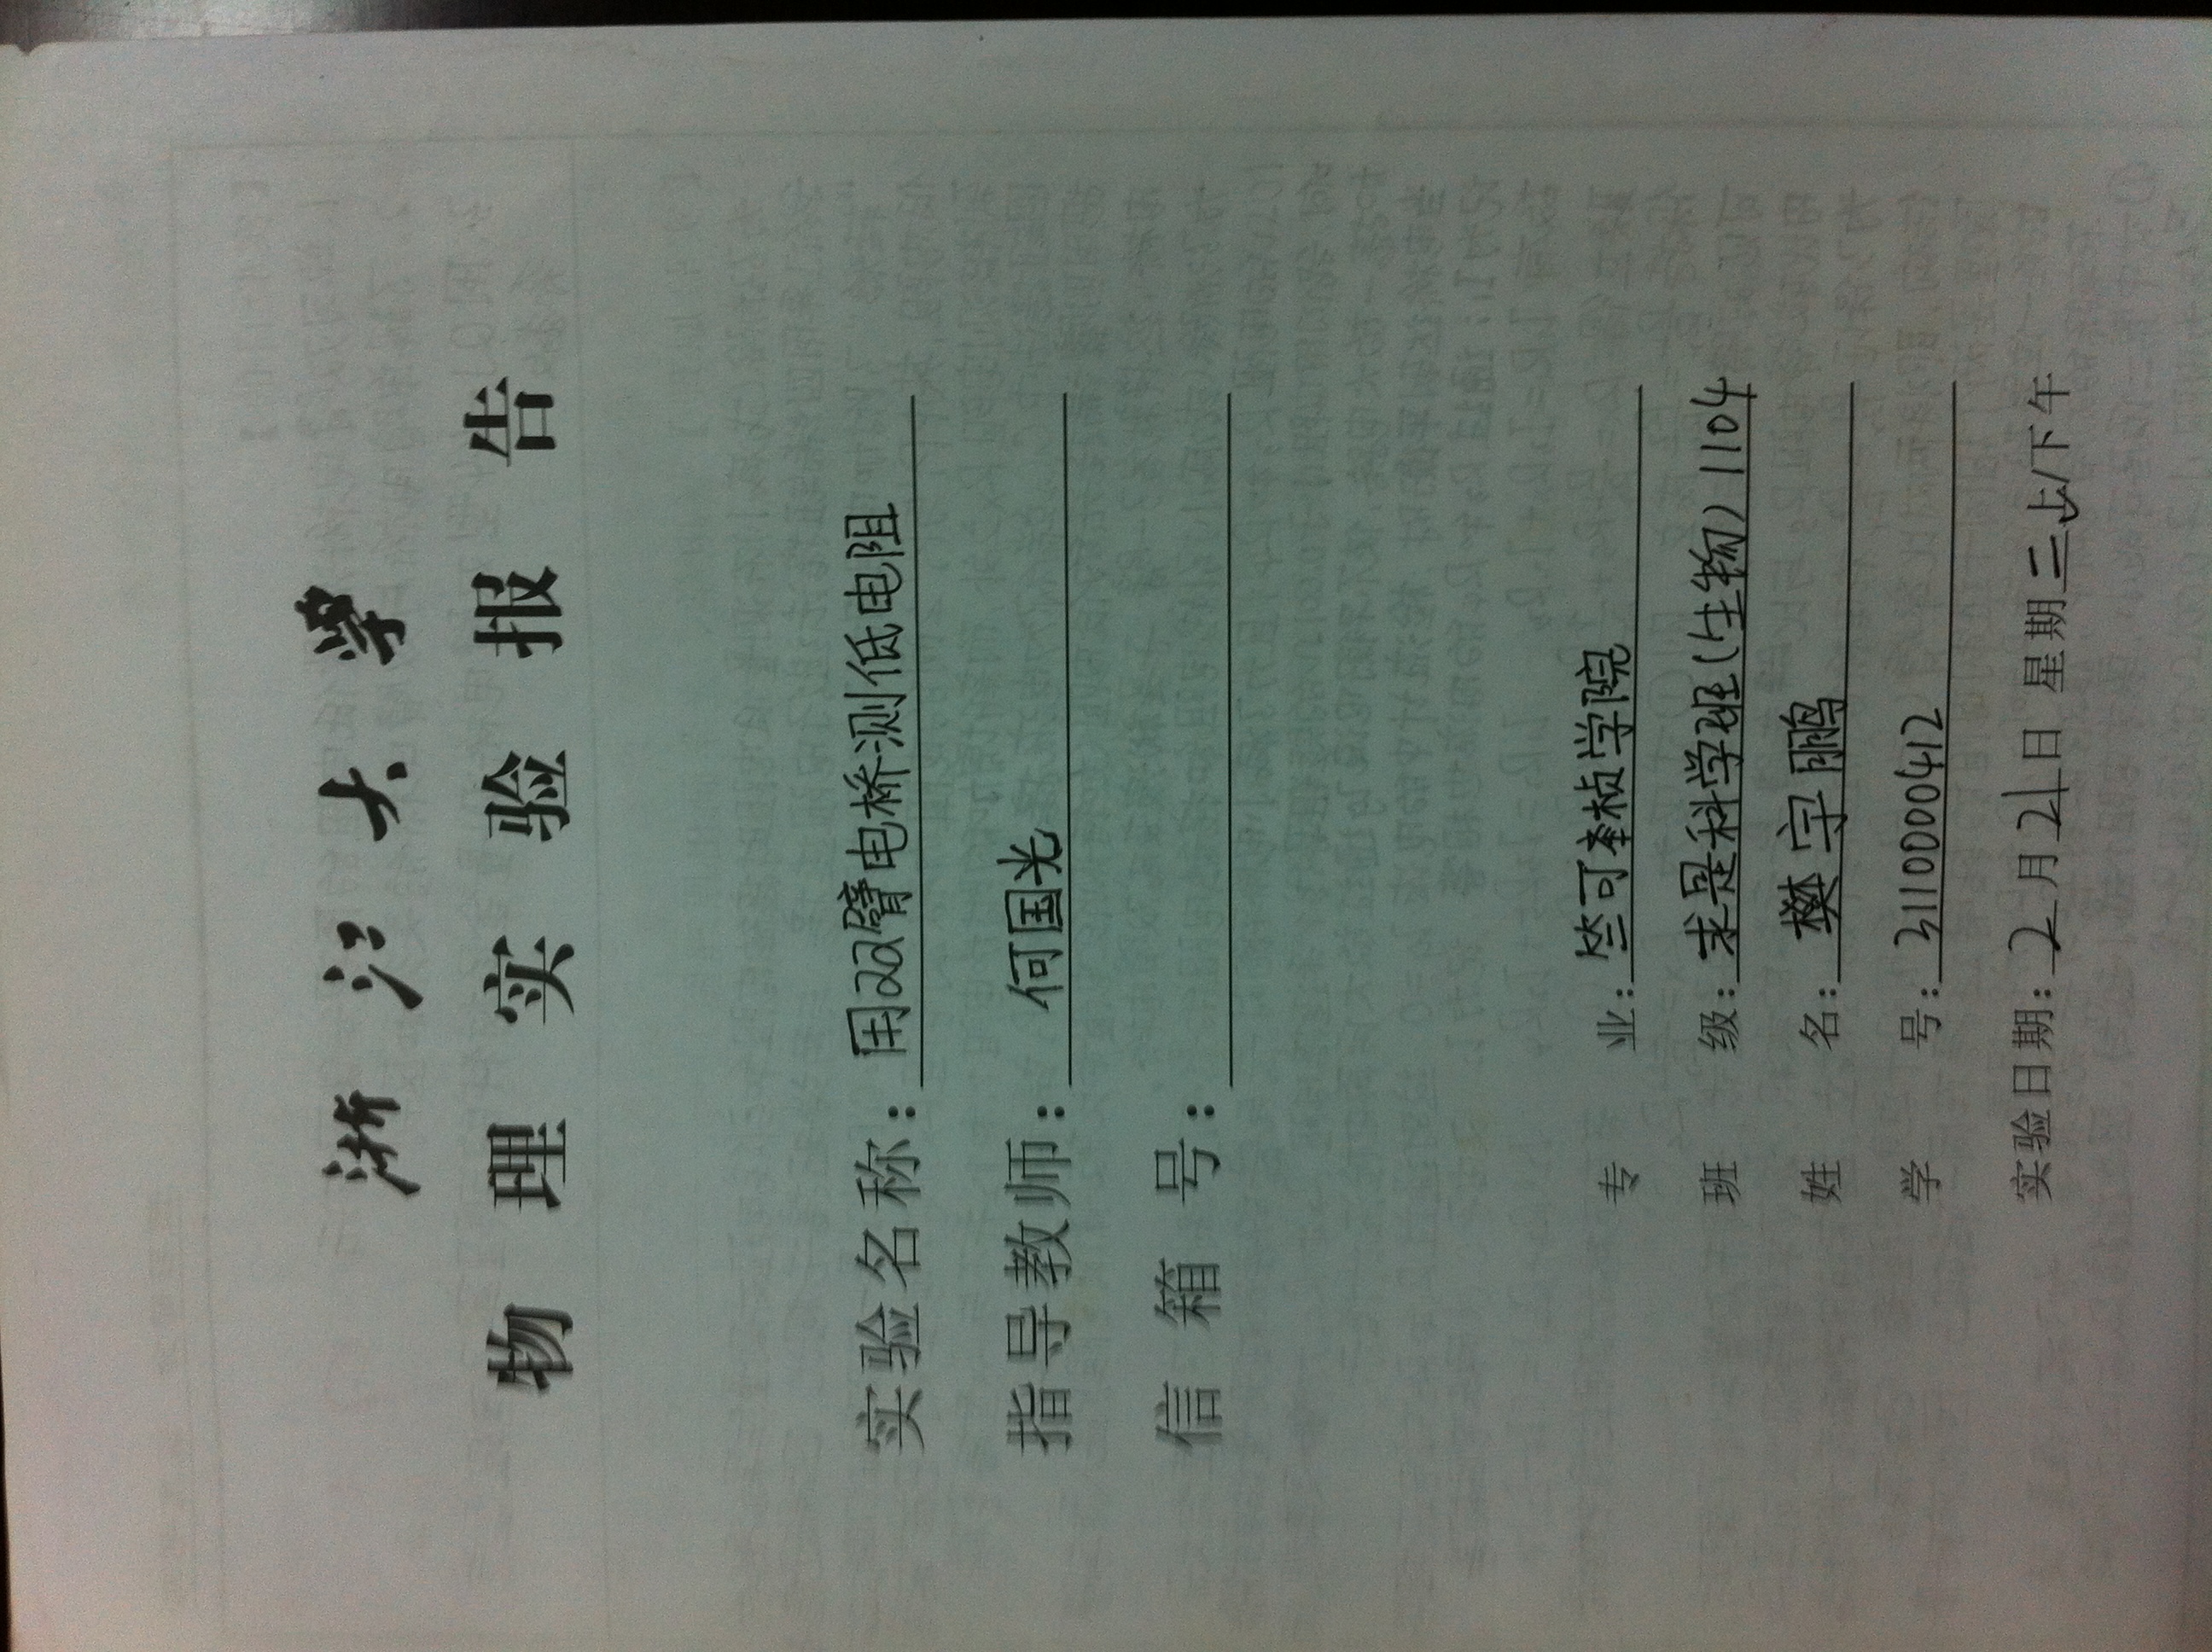 浙江大学
物理实验报告
实验名称：用双臂电桥测低电阻
指导教师：何国光
信箱号：
专业：竺可桢学院
班级：求是科学班(生物)1104
姓名：樊宇鹏
学号：3110000412
实验日期：2月21日 星期二上/下午